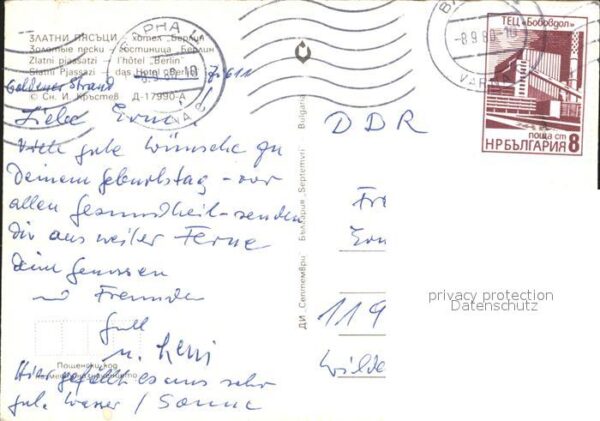 ЗЛАТНИ ПЯСЪЦИ — хотел „Берлин"
Золотые пески — гостиница „Берлин"
Zlatni pjasatzi — l'hôtel „Berlin"
Slatni Pjassazi — das Hotel „Berlin"
Goldener Strand
© Сн. И. Кръстев Д-17990-А
Liebe Erna!
Viele gute Wünsche zu
Deinem Geburtstag - vor
allen Gesundheit - senden
Dir aus weiter Ferne
Dein Genossen
und Freunden
u.
Hier gefällt es uns sehr
gut. Wasser / Sonne
Пощенски код
ДИ „Септември" България „Septemvri" Bulgaria
ВАРНА
VARNA
-8.9.80-10
ТЕЦ „Бобовдол"
поща ст 8
НР БЪЛГАРИЯ
DDR
Fr
Ern
119
Wilde
privacy protection
Datenschutz